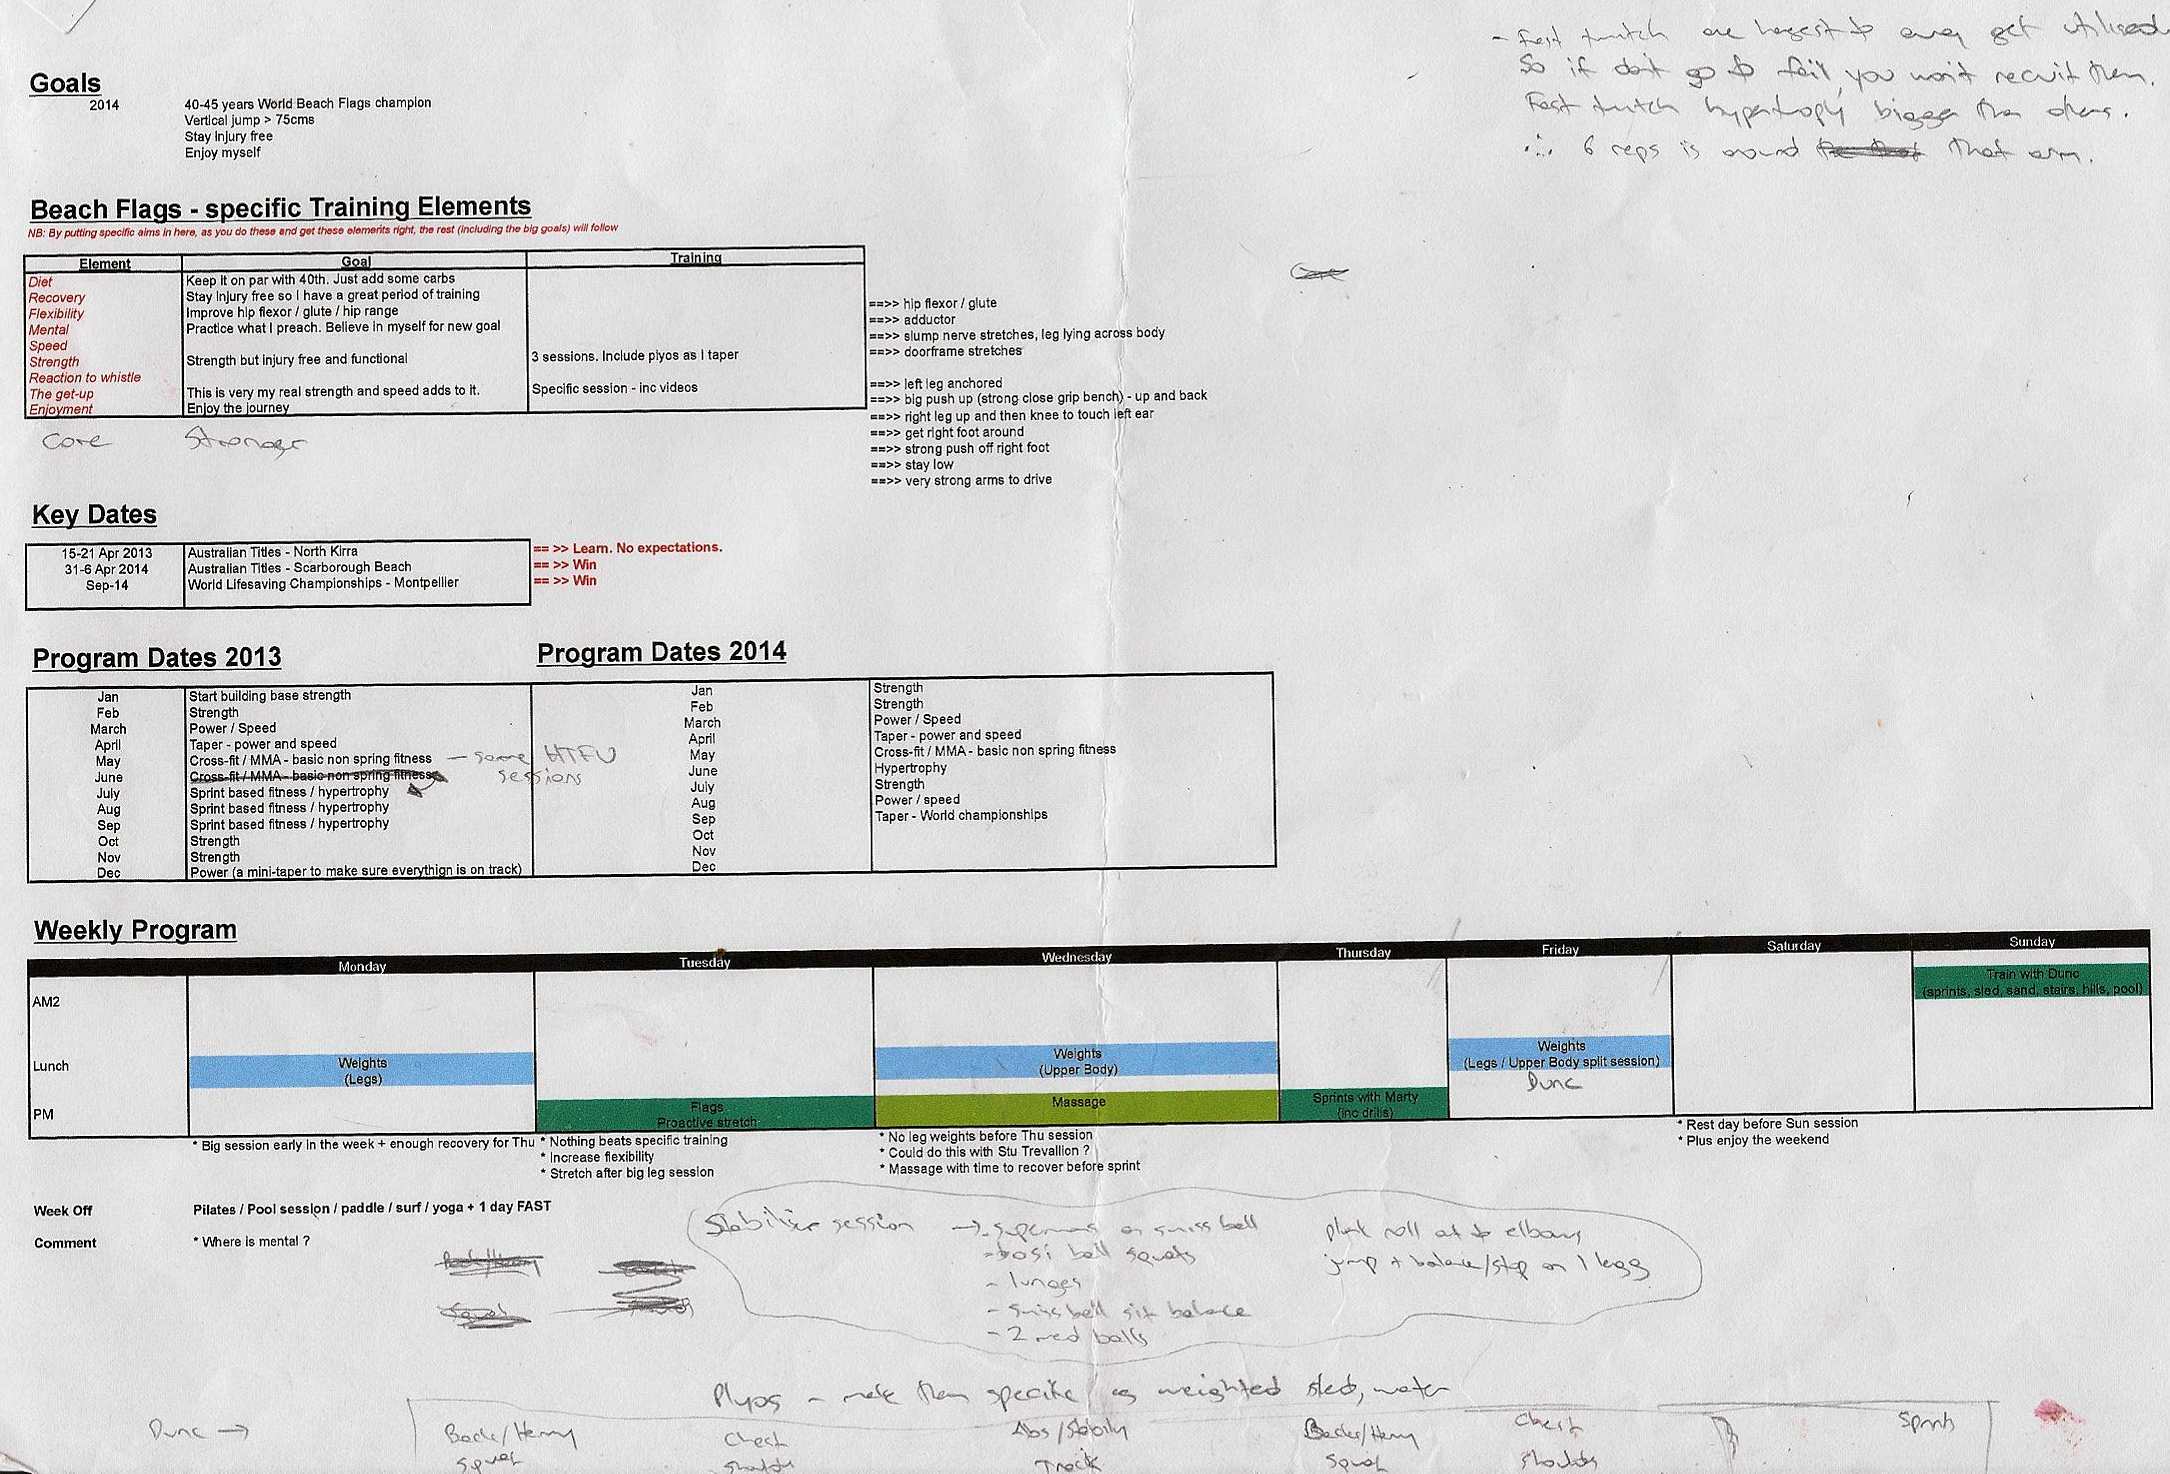 - Fast twitch are hardest to get utilised
So if don't go to fail, you won't recruit them.
Fast twitch hypertrophy bigger than others.
∴ 6 reps is around that
Goals
2014 40-45 years World Beach Flags champion
Vertical jump > 75cms
Stay Injury free
Enjoy myself
Beach Flags - specific Training Elements
NB: By putting specific aims in here, as you do these and get these elements right, the rest (including the big goals) will follow
Element Goal Training
Diet Keep it on par with 40th. Just add some carbs
Recovery Stay Injury free so I have a great period of training ==>> hip flexor / glute
Flexibility Improve hip flexor / glute / hip range ==>> adductor
Mental Practice what I preach. Believe in myself for new goal ==>> slump nerve stretches, leg lying across body
Speed ==>> doorframe stretches
Strength Strength but injury free and functional 3 sessions. Include plyos as I taper
Reaction to whistle ==>> left leg anchored
The get-up This is very my real strength and speed adds to it. Specific session - inc videos ==>> big push up (strong close grip bench) - up and back
Enjoyment Enjoy the journey ==>> right leg up and then knee to touch left ear
Core Stronger ==>> get right foot around
==>> strong push off right foot
==>> stay low
==>> very strong arms to drive
Core
Key Dates
15-21 Apr 2013 Australian Titles - North Kirra == >> Learn. No expectations.
31-6 Apr 2014 Australian Titles - Scarborough Beach == >> Win
Sep-14 World Lifesaving Championships - Montpellier == >> Win
Program Dates 2013 Program Dates 2014
Jan Start building base strength Jan Strength
Feb Strength Feb Strength
March Power / Speed March Power / Speed
April Taper - power and speed April Taper - power and speed
May Cross-fit / MMA - basic non spring fitness - some HTFU sessions May Cross-fit / MMA - basic non spring fitness
June Cross-fit / MMA - basic non spring fitness June Hypertrophy
July Sprint based fitness / hypertrophy July Strength
Aug Sprint based fitness / hypertrophy Aug Power / speed
Sep Sprint based fitness / hypertrophy Sep Taper - World championships
Oct Strength Oct
Nov Strength Nov
Dec Power (a mini-taper to make sure everythign is on track) Dec
Weekly Program
Monday Tuesday Wednesday Thursday Friday Saturday Sunday
AM2 Train with Dunc
(sprints, sled, sand, stairs, hills, pool)
Lunch Weights Weights Weights
(Legs) (Upper Body) (Legs / Upper Body split session)
Dunc
PM Flags Massage Sprints with Marty
Proactive stretch (inc drills)
* Big session early in the week + enough recovery for Thu * Nothing beats specific training * No leg weights before Thu session * Rest day before Sun session
* Increase flexibility * Could do this with Stu Trevallion ? * Plus enjoy the weekend
* Stretch after big leg session * Massage with time to recover before sprint
Week Off Pilates / Pool session / paddle / surf / yoga + 1 day FAST
Comment * Where is mental ?
Stabiliser session → - supermans on swiss ball plank roll out to elbows
- bosi ball squats jump + balance/stop on 1 leg
- lunges
- swiss ball sit balance
- 2 med balls
Plyos - make them specific eg weighted sled, water
Dunc → Back/Hammy Chest Abs/Stability Back/Hammy Chest Sprints
Squat Shoulders Track Squat Shoulders